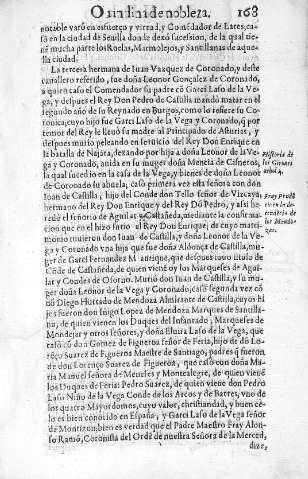 O un lina de nobleza. 168
notable varō en esfuerço y virtud, y Comēdador de Lares, ca-
sò en la ciudad de Seuilla don de dexò sucession, de la qual tie
nē mucha parte los Roelas, Marmolejos, y Santillanas de aque
lla ciudad.
La tercera hermana de Iuan Vazquez de Coronado, y deste
cauallero referido, fue doña Leonor Gonçalez de Coronado,
a quien caso el Comendador su padre cō Garci Laso de la Ve-
ga, y despues el Rey Don Pedro de Castilla mandò matar en el
segundo año de su Reynado en Burgos, como lo refiere su Co-
ronica, cuyo hijo fue Garci Laso de la Vega y Coronado, q̄ por
temor del Rey le lleuò su madre al Principado de Asturias, y
despues murio peleando en seruicio del Rey Don Enrique en
la batalla de Najara, dexando por hija a doña Leonor de la Ve-
ga y Coronado, auida en su muger doña Mencia de Cisneros,
la qual sucediò en la casa de la Vega, y bienes de doña Leonor
de Coronado su abuela, caso primera vez esta señora con don
Iuan de Castilla, hijo del Conde don Tello señor de Vizcaya,
hermano del Rey Don Enrique y del Rey Dō Pedro, y assi he-
redò el señorio de Aguilar y Castañeda, mediante la confirma-
cion que en el hizo su tio el Rey Don Enrique; de cuyo matri-
monio tuuieron don Iuan de Castilla, y doña Leonor de la Ve-
ga y Coronado vna hija que fue doña Aldonça de Castilla, mu-
ger de Garci Fernandez Manrique, que despues tuuo titulo de
Conde de Castañeda, de quien vienē oy los Marqueses de Agui
lar, y Condes de Osorno. Muriò don Iuan de Castilla, y su mu-
ger doña Leonor de la Vega y Coronado, casò segunda vez cō
dō Diego Hurtado de Mendoza Almirante de Castilla, cuyos hi
jos fueron don Iñigo Lopez de Mendoza Marques de Santilla-
na, de quien vienen los Duques del Infantado, Marqueses de
Mondejar y otros señores, y doña Eluira Laso de la Vega, que
casò cō don Gomez de Figueroa señor de Feria, hijo de dō Lo-
rēço Suarez de Figueroa Maestre de Santiago, padres q̄ fueron
de don Lorenço Suarez de Figueroa, que casò con doña
Maria Manuel señora de Meneses y Montealegre, de quien viene
los Duques de Feria: Pedro Suarez, de quien viene don Pedro
Laso Niño de la Vega Conde de los Arcos y de Batres, vno de
los quatro Mayordomos, cuyo valor, christiandad, y buen ce-
lo es bien conocido en España, y Garci Laso de la Vega señor
de Montizon, bien es verdad que el Padre Maestro Fray Alon-
so Ramō, Coronista del Ordē de nuestra Señora de la Merced,
dize,
Historia de
los Girones
arbol
Fray Prudē
cio en la de-
cendencia de
los Mendo-
zas.